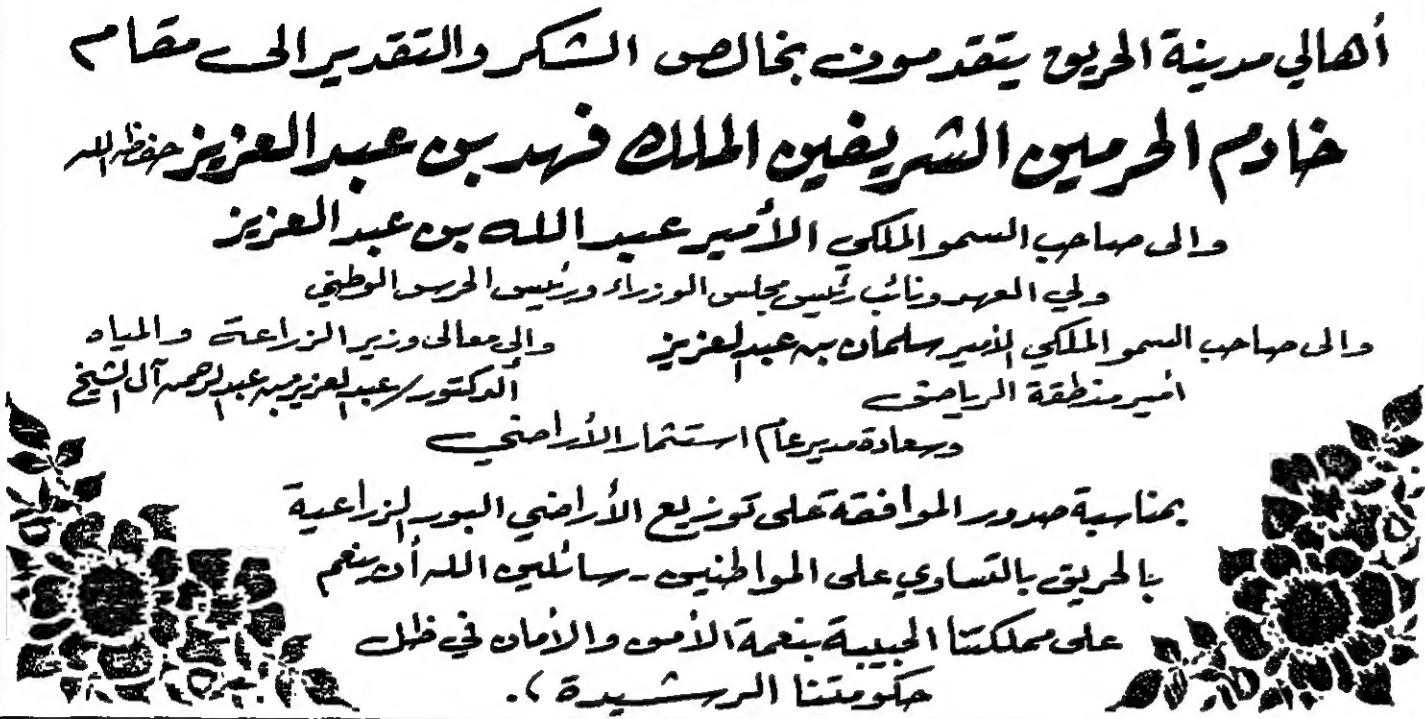 أهالي مدينة الحريق يتقدمون بخالص الشكر والتقدير الى مقام
خادم الحرمين الشريفين الملك فهد بن عبد العزيز حفظه الله
والى صاحب السمو الملكي الأمير عبد الله بن عبد العزيز
ولي العهد ونائب رئيس مجلس الوزراء ورئيس الحرس الوطني
والى صاحب السمو الملكي الأمير سلمان بن عبد العزيز
أمير منطقة الرياض
والى معالى وزير الزراعة والمياه
الدكتور / عبد العزيز بن عبد الرحمن آل الشيخ
وسعادة مدير عام استثمار الأراضي
بمناسبة صدور الموافقة على توزيع الأراضي البور الزراعية
بالحريق بالتساوي على المواطنين - سائلين الله أن ينعم
على مملكتنا الحبيبة بنعمة الأمن والأمان في ظل
حكومتنا الرشيدة ،.